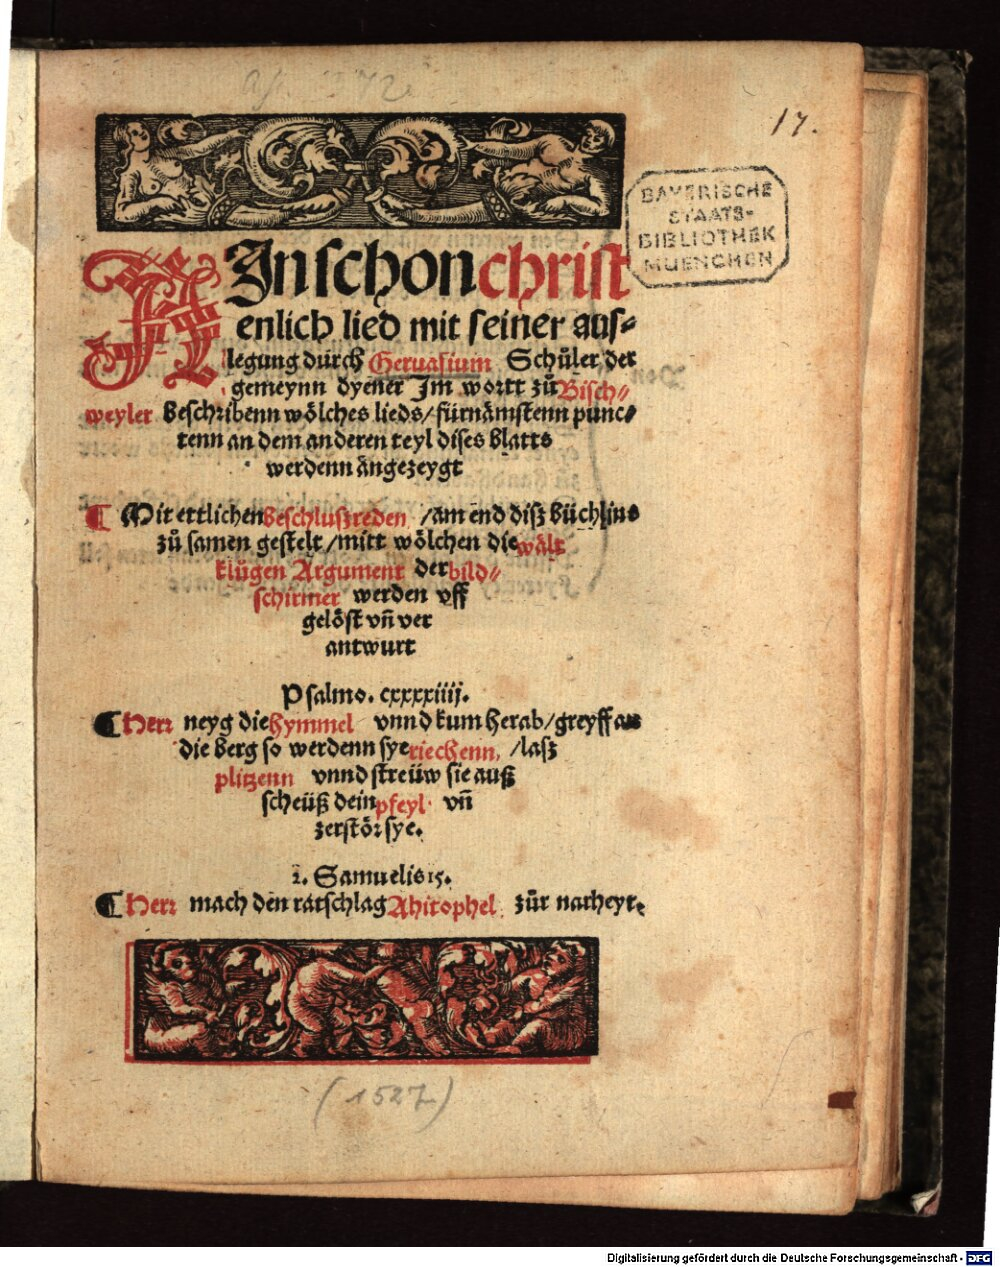 17.
BAYERISCHE
STAATS-
BIBLIOTHEK
MUENCHEN
EJn schon christ
enlich lied mit seiner aus-
legung durch Geruasium Schüler, der
gemeynn dyener Jm wortt zů Bisch-
weyler beschribenn wölches lieds/ fürnämstenn punc-
tenn an dem anderen teyl dises blatts
werdenn angezeygt
¶ Mit ettlichen beschluszreden / am end disz büchlins
zů samen gestelt/ mitt wölchen die wält
klůgen Argument der bild-
schirmer werden vff
gelöst vñ ver
antwurt
Psalmo. cxxxxiiij.
¶ Herr neyg die hymmel vnnd kum herab/ greyff an
die berg so werdenn sye riechenn, /lasz
plitzenn vnnd streüw sie auß
scheüß dein pfeyl vñ
zerstör sye.
2. Samuelis 15.
¶ Herr mach den ratschlag Ahitophel zůr narheyt.
(1527)
Digitalisierung gefördert durch die Deutsche Forschungsgemeinschaft - DFG